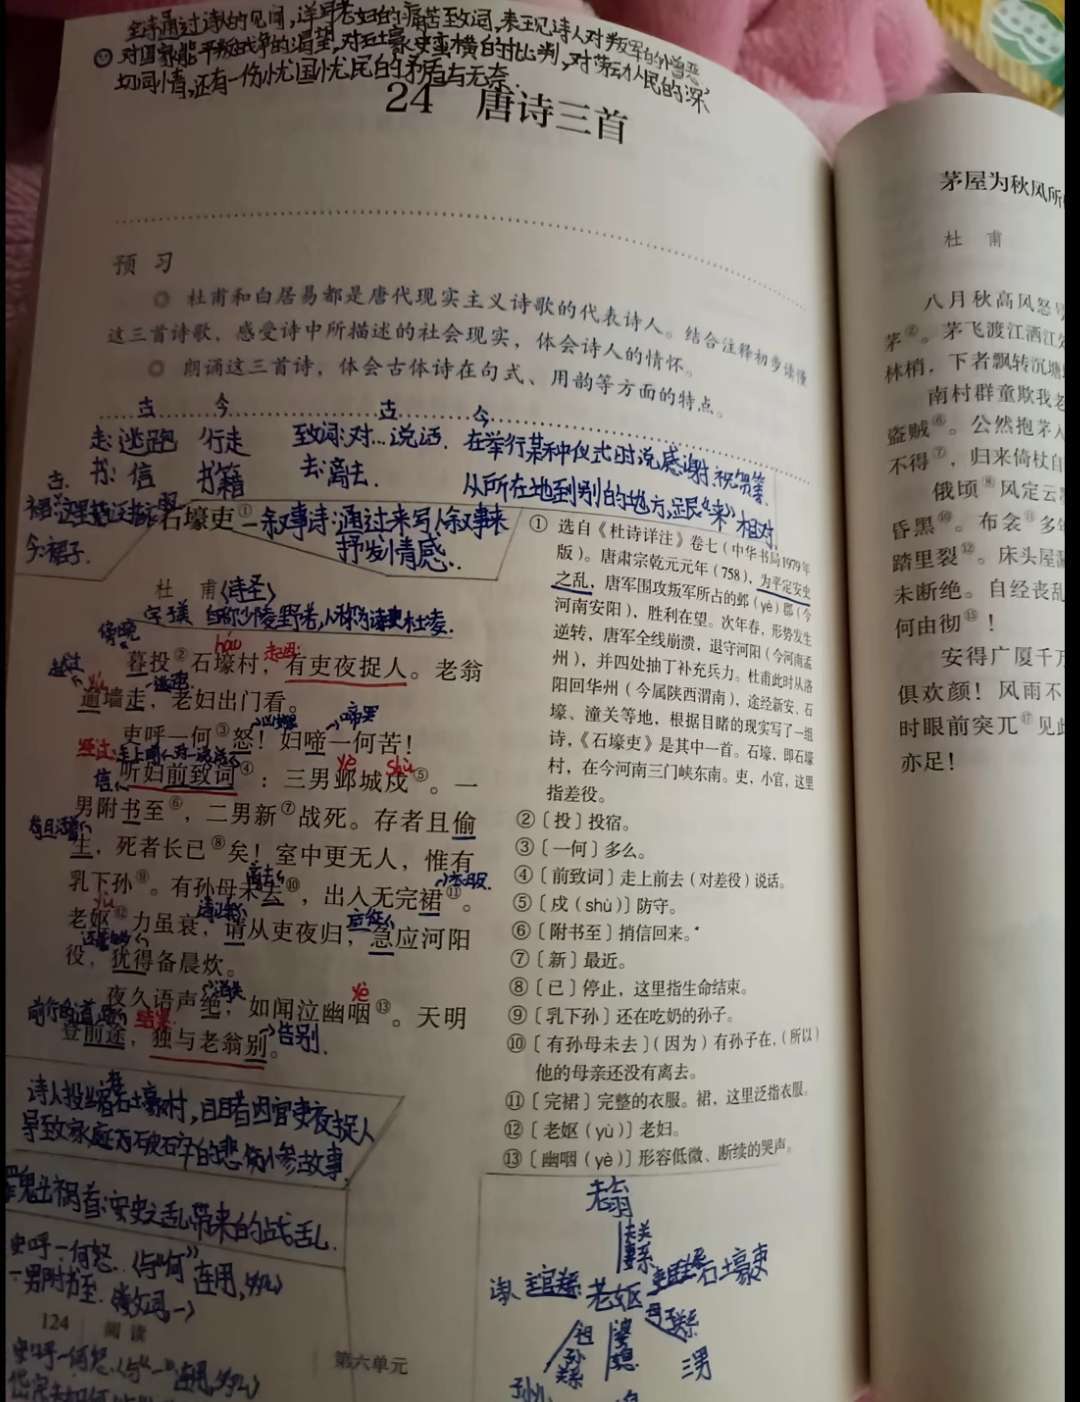 全诗通过诗人的见闻,详写老妇的痛苦致词,来表现诗人对叛军的憎恶,
对国家能平叛战争的渴望,对石壕吏蛮横的批判,对劳动人民的深
切同情,还有一份忧国忧民的矛盾与无奈.
24 唐诗三首
预 习
◎ 杜甫和白居易都是唐代现实主义诗歌的代表诗人。结合注释初步读懂
这三首诗歌,感受诗中所描述的社会现实,体会诗人的情怀。
◎ 朗诵这三首诗,体会古体诗在句式、用韵等方面的特点。
古 今 古 今
走:逃跑 行走 致词:对…说话. 在举行某种仪式时说感谢,祝贺等
书:信 书籍 去:离去. 从所在地到别的地方,跟“来”相对.
古:
今:裙子.
石壕吏① 一叙事诗:通过来写人叙事来
抒发情感.
杜 甫 (诗圣)
字子美 自称少陵野老,人称为诗史 杜少陵.
傍晚 háo 起因:
暮投②石壕村,有吏夜捉人。老翁
越过 yú 逃跑
逾墙走,老妇出门看。
啼哭
吏呼一何③怒!妇啼一何苦!
经过: yè shù
信
听妇前致词④:三男邺城戍⑤。一
男附书至⑥,二男新⑦战死。存者且偷
苟且活着
生,死者长已⑧矣!室中更无人,惟有
离去
乳下孙⑨。有孙母未去⑩,出入无完裙⑪。
衣服
yù
老妪⑫力虽衰,请从吏夜归,急应河阳
请让我 应征
还能够
役,犹得备晨炊。
消失 yè
夜久语声绝,如闻泣幽咽⑬。天明
前行的道路 结果:
登前途,独与老翁别。
告别.
诗人投宿石壕村,目睹因官吏夜捉人
导致家庭支破碎的悲伤惨故事.
罪魁祸首:安史之乱带来的战乱.
吏呼一何怒.(与“何”连用,多么)
一男附书至.(数词一)
124 阅读
第六单元
① 选自《杜诗详注》卷七(中华书局1979年
版)。唐肃宗乾元元年(758),为平定安史
之乱,唐军围攻叛军所占的邺(yè)郡(今
河南安阳),胜利在望。次年春,形势发生
逆转,唐军全线崩溃,退守河阳(今河南孟
州),并四处抽丁补充兵力。杜甫此时从洛
阳回华州(今属陕西渭南),途经新安、石
壕、潼关等地,根据目睹的现实写了一组
诗,《石壕吏》是其中一首。石壕,即石壕
村,在今河南三门峡东南。吏,小官,这里
指差役。
②〔投〕投宿。
③〔一何〕多么。
④〔前致词〕走上前去(对差役)说话。
⑤〔戍(shù)〕防守。
⑥〔附书至〕捎信回来。
⑦〔新〕最近。
⑧〔已〕停止,这里指生命结束。
⑨〔乳下孙〕还在吃奶的孙子。
⑩〔有孙母未去〕(因为)有孙子在,(所以)
他的母亲还没有离去。
⑪〔完裙〕完整的衣服。裙,这里泛指衣服。
⑫〔老妪(yù)〕老妇。
⑬〔幽咽(yè)〕形容低微、断续的哭声。
老翁
夫妻
关系
老妪 石壕吏
母子关系
祖孙关系
婆媳
三男
茅屋为秋风所
杜 甫
八月秋高风怒号
茅②。茅飞渡江洒江
林梢,下者飘转沉塘
南村群童欺我老
盗贼⑥。公然抱茅入
不得⑦,归来倚杖自
俄顷⑧风定云
昏黑⑩。布衾⑪多
踏里裂⑫。床头屋漏
未断绝。自经丧乱
何由彻⑮!
安得广厦千万
俱欢颜!风雨不
时眼前突兀⑰见此
亦足!